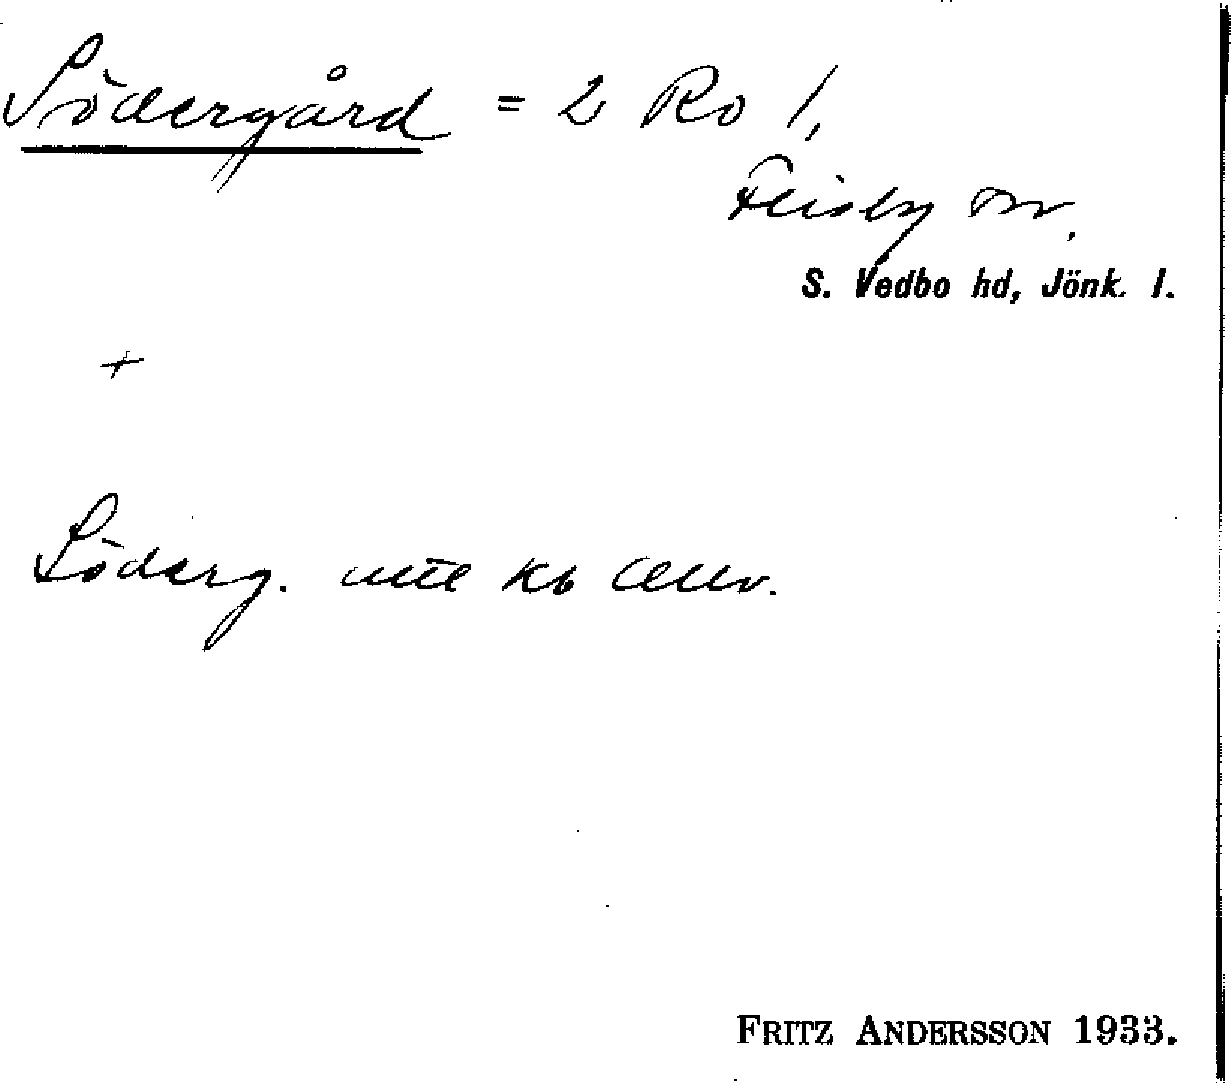 Södergård = 2 Ro 1,
Flisby sn,
S. Vedbo hd, Jönk. l.
+
Söderg. utst
FRITZ ANDERSSON 1933.